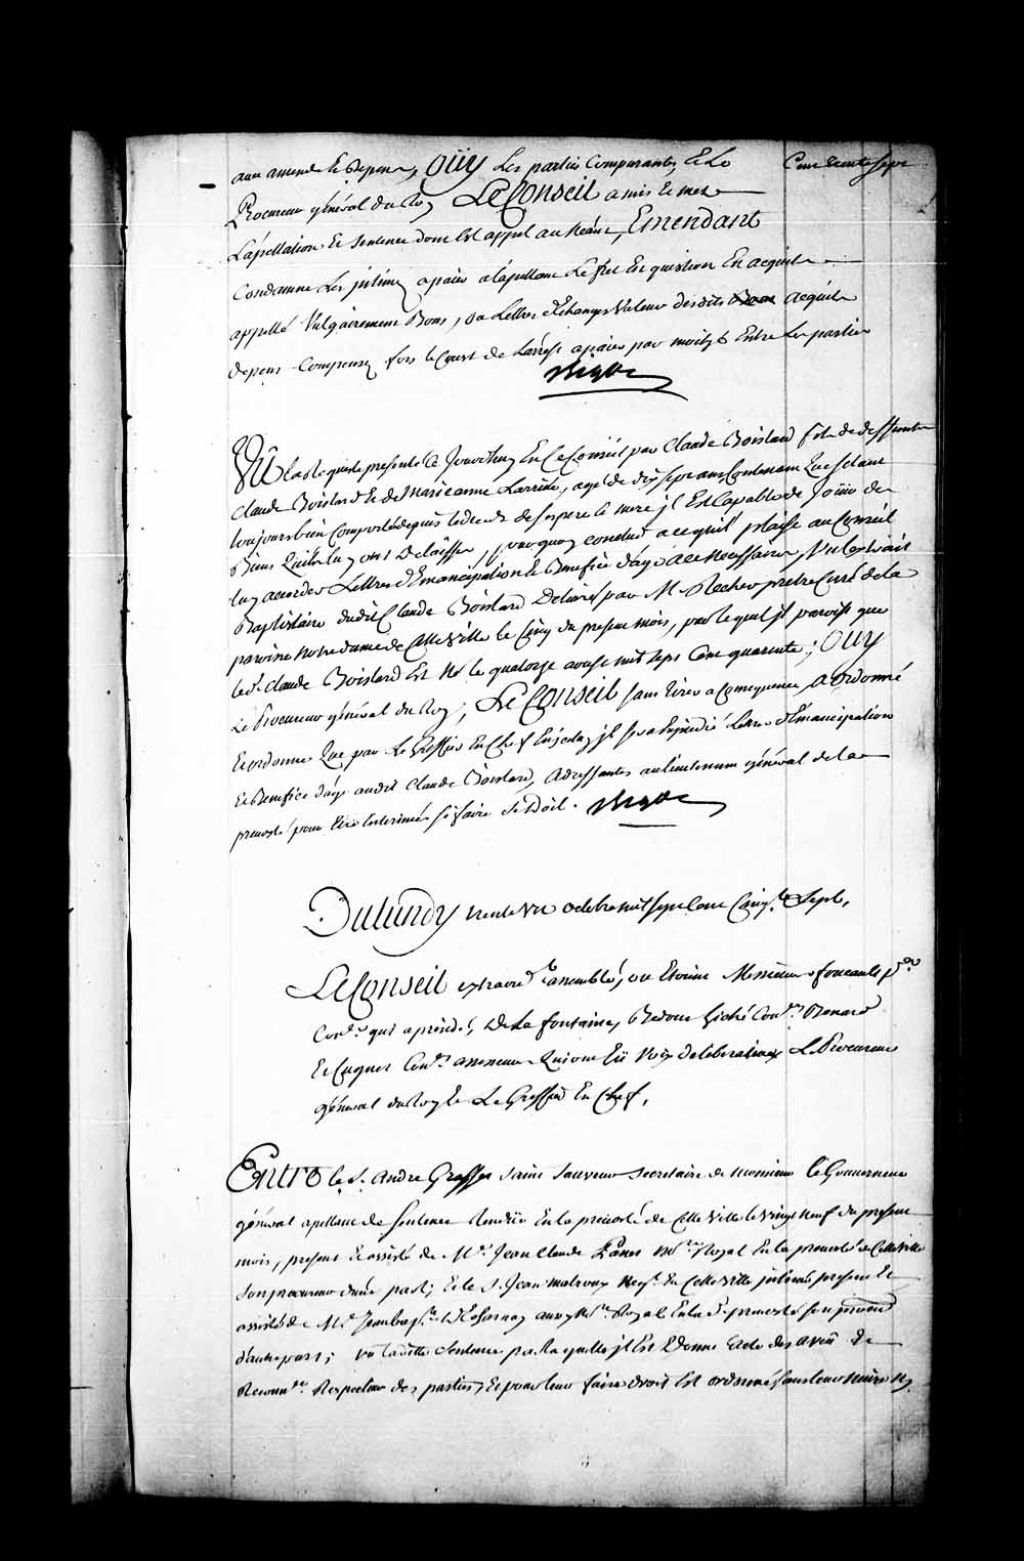 aux amende Et Depens, Oüy Les parties Comparantes, Et Le
Cent trente sept
Procureur général du Roy Le Conseil a mis Et met
L'apellation Et sentence dont Est appel au Néant, Emendant
Condamne Les jntimés a paier a l'apellant Le fret En question En acquits
appellé Vulgairement Bons, ou Lettres d'Echanges Valeur desdits acquits
depens Compensés fors le Coust de L'arrest a paier par moitié Entre Les parties
Bigot
Vû la Requeste presenté Ce Jourd'huy En Ce Conseil par Claude Boislard fils de deffunts
Claude Boislard Et de Marie anne Larrivée, agé de dix sept ans, Contenant Que s'Etant
toujours bien Comporté depuis le decedz de ses pere Et mere jl Est Capable de Joüir des
Biens Qu'ils luy ont Delaissés, pourquoy conclud a ce qu'il plaise au Conseil
luy accorder Lettres d'Emancipation Et Benefice d'âge a ce Necessaires, Vu l'extrait
Baptistaire dudit Claude Boislard Delivré par M. Recher prêtre Curé de la
paroisse Notre dame de Cette Ville le Cinq du present mois, par lequel jl paroist que
led. Claude Boislard Est Né le quatorze aoust mil sept Cent quarente; Ouy
Le Procureur général du Roy; Le Conseil sans tirer a Consequence, a Ordonné
Et ordonne Que par Le Greffier En Chef En jceluy jl sera Expedié Lettres d'Emancipation
Et Benefice d'âge audit Claude Boislard, Adressantes au lieutenant général de la
prevosté pour Etre Enterinées si faire Se Doit. Bigot
Du Lundy trente Un Octobre mil sept Cent Cinq.te Sept,
Le Conseil extraord.t assemblé, ou Etoient Messieurs foucault p.er
Con.er qui a présidé, De La fontaine, Bedout Guiché Con.ers Benard
Et Cugnet Con.ers assesseurs Qui ont Eü Voix deliberatives Le Procureur
général du Roy Et Le Greffier En Chef,
Entre le S. André Grasset Saint Sauveur Secretaire de Monsieur le Gouverneur
général apellant de Sentence Rendüe En la prevosté de Cette Ville le Vingt Neuf du present
mois, present Et assisté de M.e Jean Claude Panet No.re Royal En la prevosté de Cette Ville
Son procureur d'une part; Et le S. Jean Malroux Neg.t En Cette Ville jntimé present Et
assisté de M.e Jean bap.te Decharnay aussy No.re Royal En la d. prevosté son procureur
d'autre part; vu la ditte Sentence par laquelle jl Est Donné acte des aveü De
Reconn.ce Respective des parties, Et pour leur faire droit Est ordonné